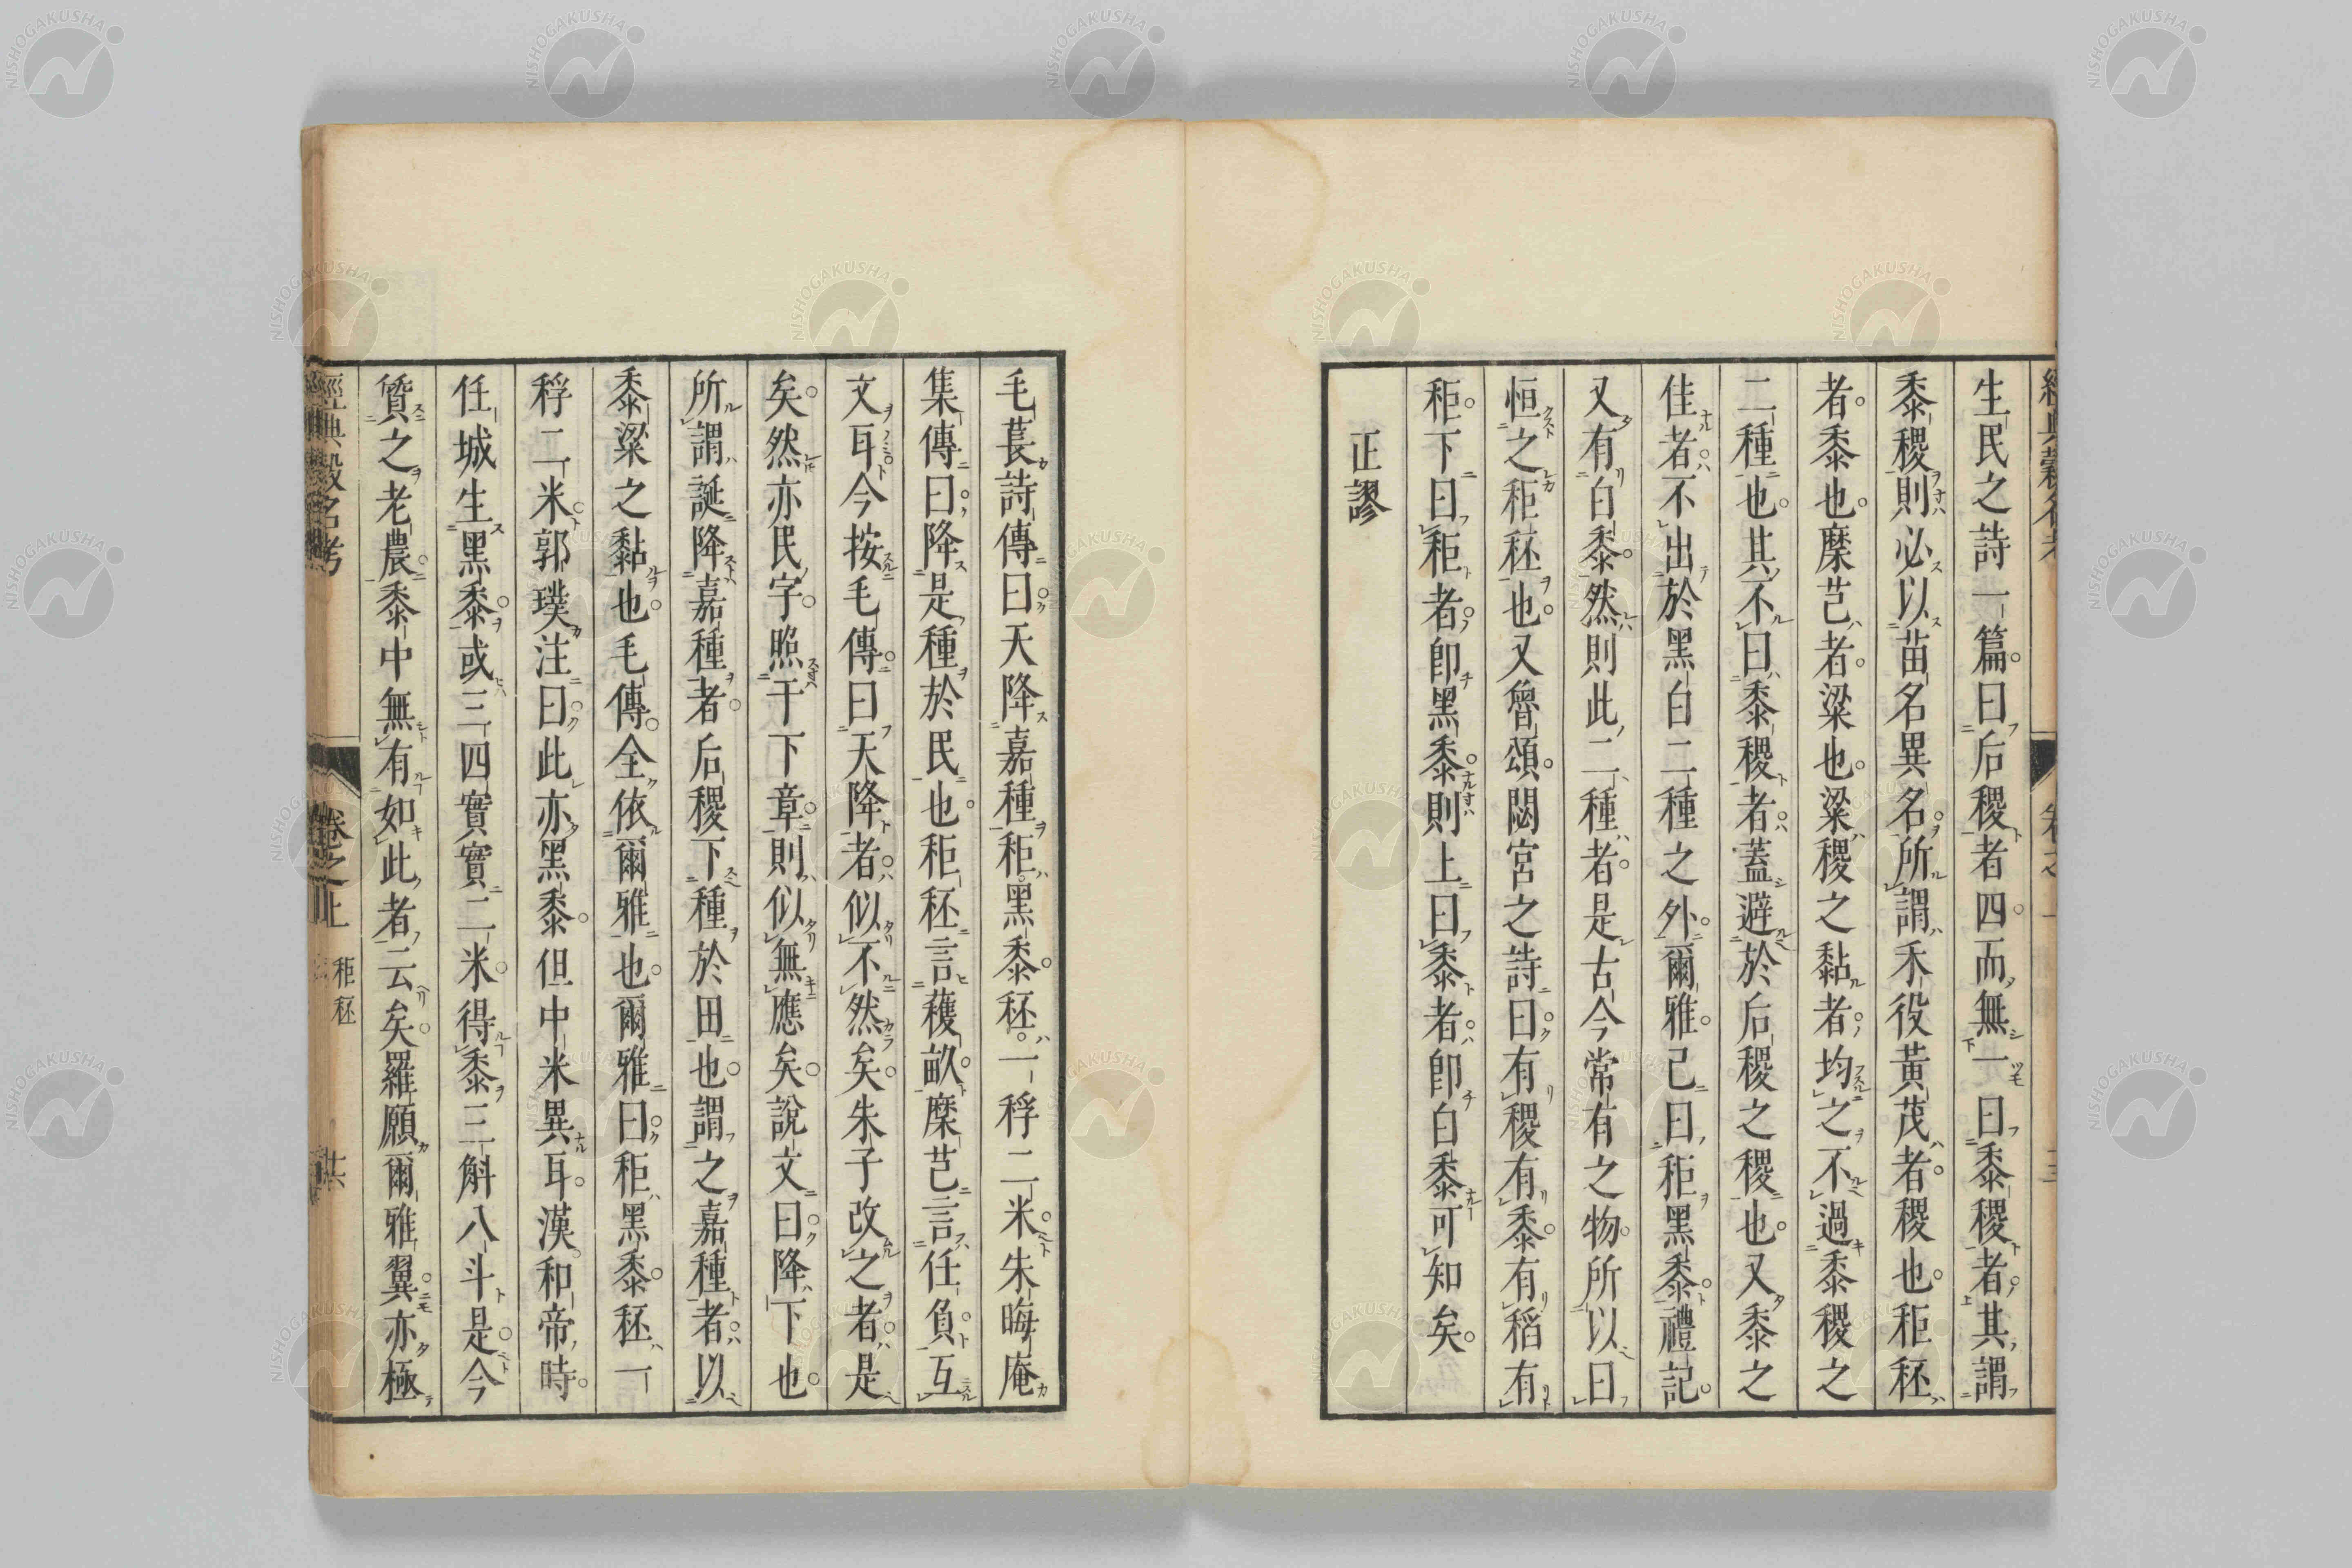 生民之詩一篇曰后稷者四而無一曰黍稷者其謂
黍稷則必以苗名異名所謂禾役黃茂者稷也秬秠
者黍也穈芑者粱也粱稷之黏者均之不過黍稷之
二種也其不曰黍稷者蓋避於后稷之稷也又黍之
佳者不出於黑白二種之外爾雅已曰秬黑黍禮記
又有白黍然則此二種者是古今常有之物所以曰
恒之秬秠也又魯頌閟宮之詩曰有稷有黍有稻有
秬下曰秬者卽黑黍則上曰黍者卽白黍可知矣
正謬
毛萇詩傳曰天降嘉種秬黑黍秠一稃二米朱晦庵
集傳曰降是種於民也秬秠言穫畝穈芑言任負互
文耳今按毛傳曰天降者似不然矣朱子改之者是
矣然亦民字照干下章則似無應矣說文曰降下也
所謂誕降嘉種者后稷下種於田也謂之嘉種者以
黍粱之黏也毛傳全依爾雅也爾雅曰秬黑黍秠一
稃二米郭璞注曰此亦黑黍但中米異耳漢和帝時
任城生黑黍或三四實實二米得黍三斛八斗是今
質之老農黍中無有如此者云矣羅願爾雅翼亦極
經典穀名考 卷之上 秬秠 廿六
NISHOGAKUSHA